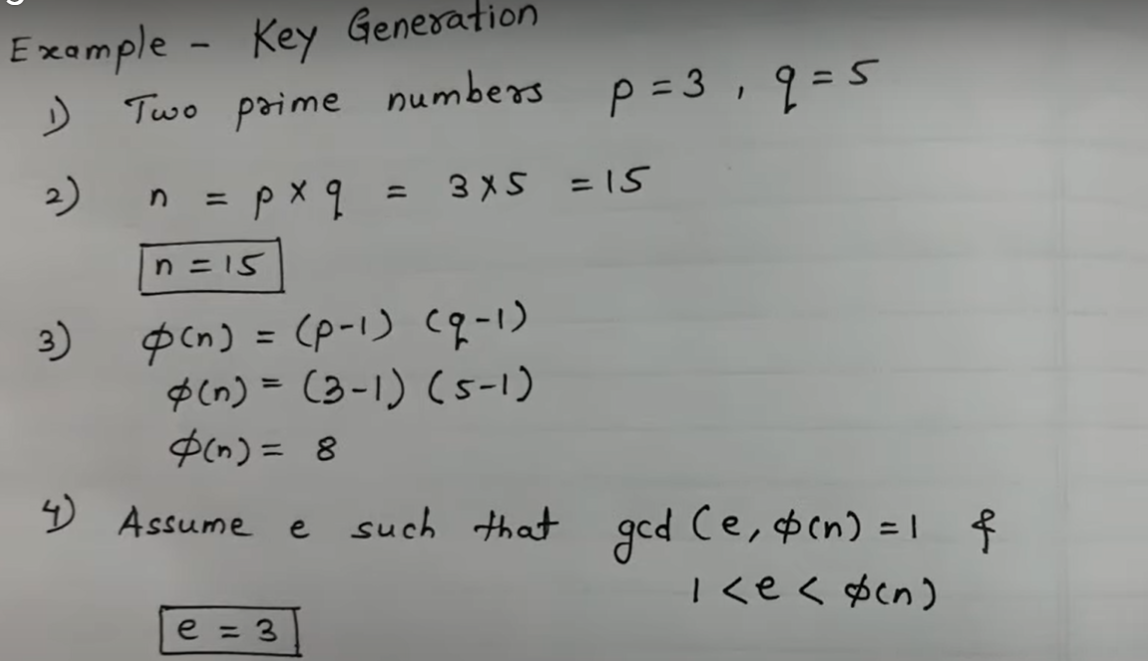 Example - Key Generation
1) Two prime numbers p = 3 , q = 5
2) n = p × q = 3 × 5 = 15
n = 15
3) ϕ(n) = (p-1) (q-1)
ϕ(n) = (3-1) (5-1)
ϕ(n) = 8
4) Assume e such that gcd (e, ϕ(n) = 1 &
1 < e < ϕ(n)
e = 3